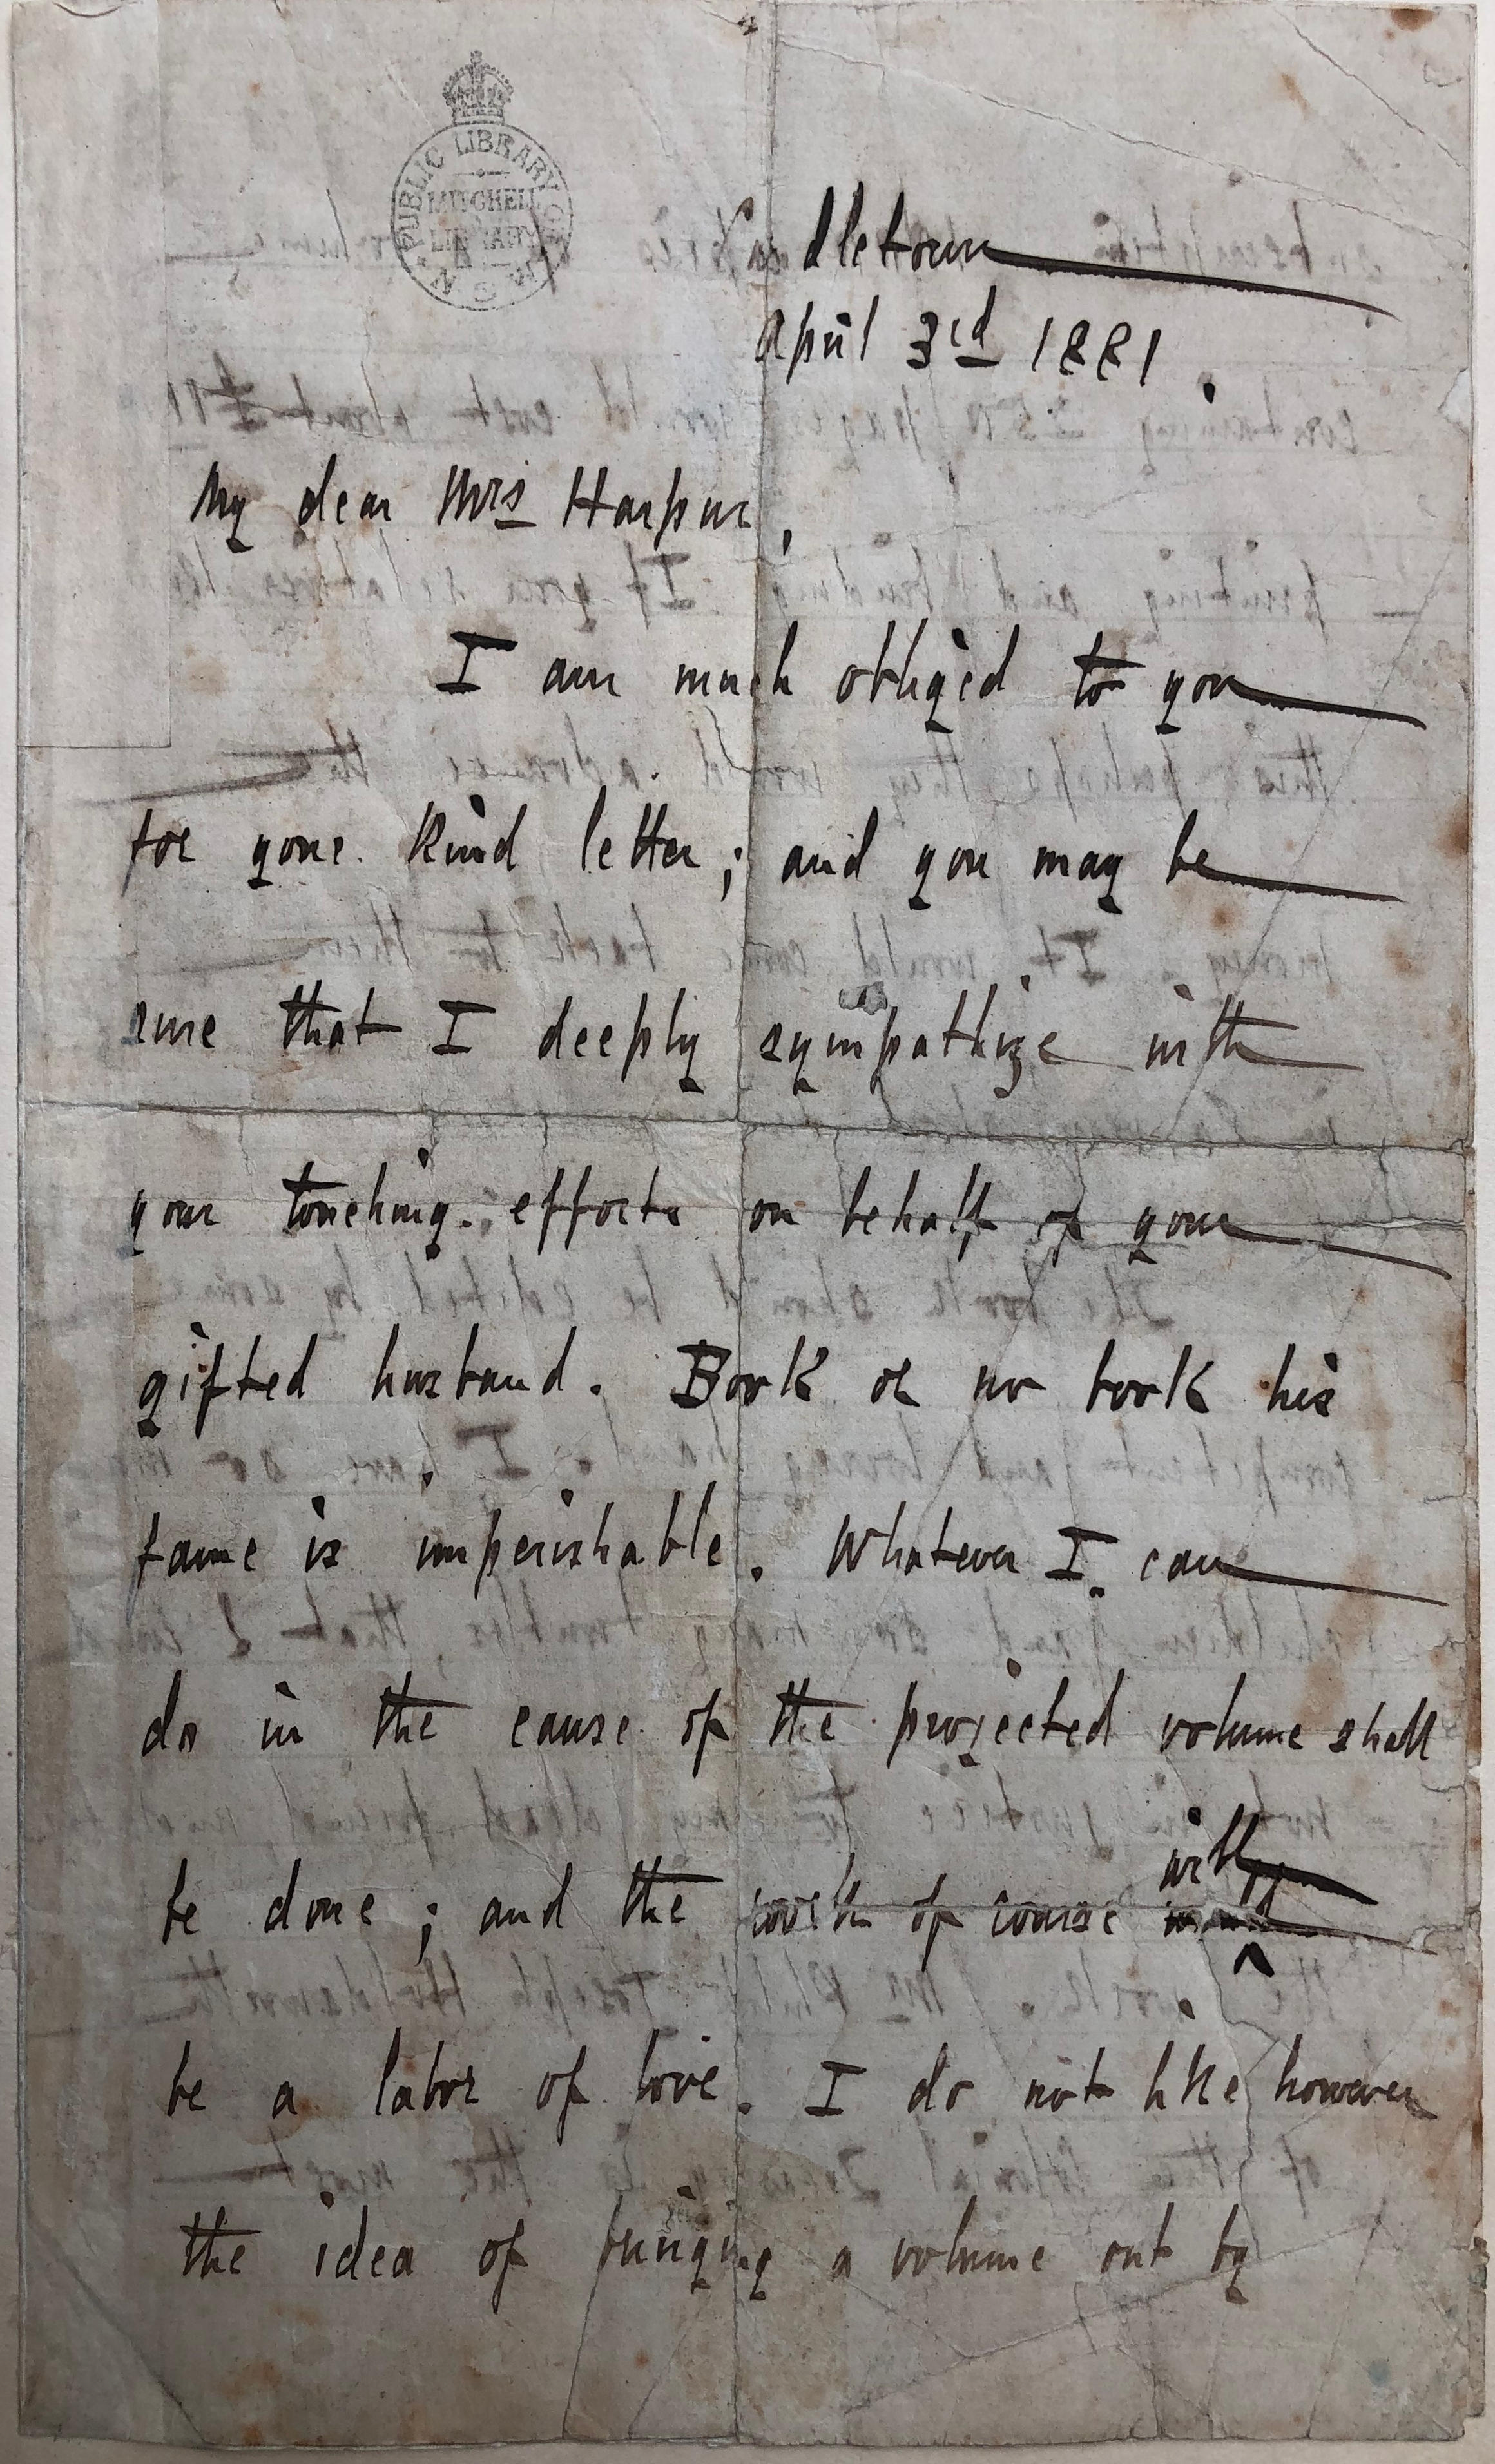 PUBLIC LIBRARY OF N.S.W.
MITCHELL
LIBRARY
Candletown
April 3rd 1881.
My dear Mrs Harpur,
I am much obliged to you
for your kind letter; and you may be
sure that I deeply sympathize with
your touching efforts on behalf of your
gifted husband. Book or no book his
fame is imperishable. Whatever I can
do in the cause of the projected volume shall
will
be done; and the work of course
be a labor of love. I do not like however
the idea of bringing a volume out by